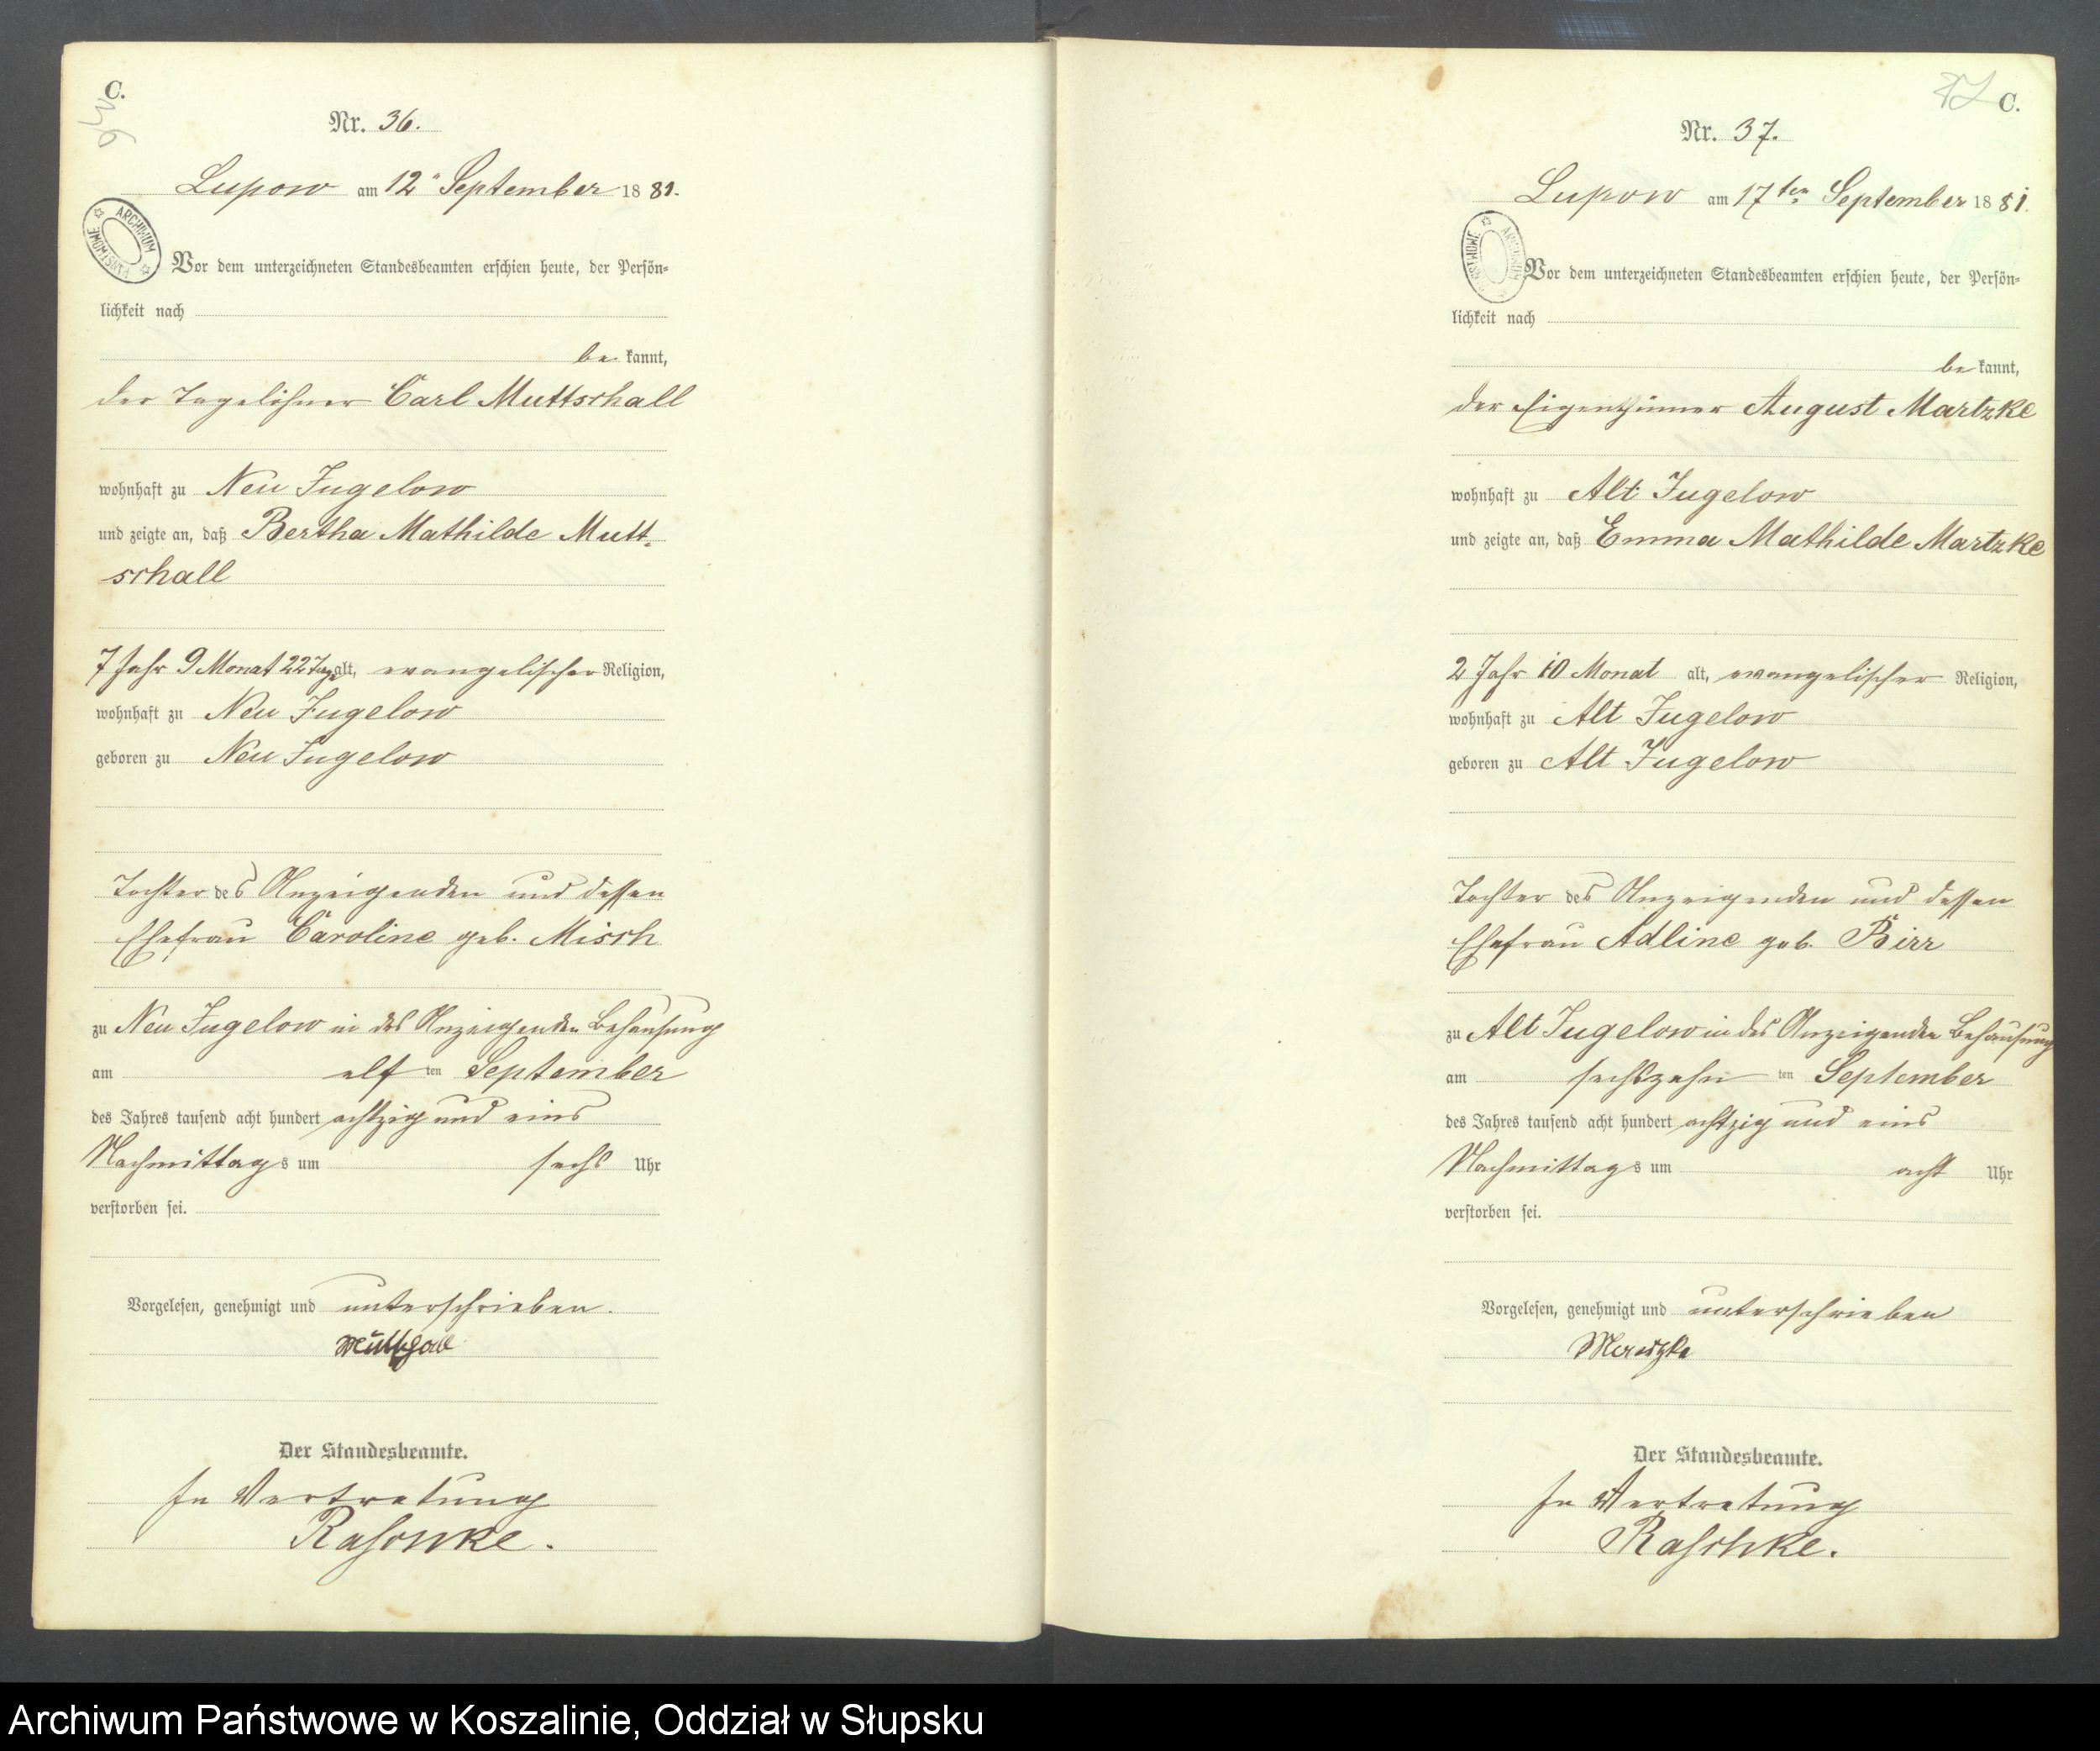 C.
36
Nr. 36.
Lupow am 12" September 1881.
ARCHIWUM PAŃSTWOWE
Vor dem unterzeichneten Standesbeamten erschien heute, der Persön-
lichkeit nach
be kannt,
der Tagelöhner Carl Muttschall
wohnhaft zu Neu Jugelow
und zeigte an, daß Bertha Mathilde Mutt-
schall
7 Jahr 9 Monat 22 Tage alt, evangelischer Religion,
wohnhaft zu Neu Jugelow
geboren zu Neu Jugelow
Tochter des Anzeigenden und dessen
Ehefrau Caroline geb. Misch
zu Neu Jugelow in des Anzeigenden Behausung
am elf ten September
des Jahres tausend acht hundert achtzig und eins
Nachmittags um sechs Uhr
verstorben sei.
Vorgelesen, genehmigt und unterschrieben.
Muttschall
Der Standesbeamte.
In Vertretung
Raschke.
37 C.
Nr. 37.
Lupow am 17ten September 1881.
ARCHIWUM PAŃSTWOWE
Vor dem unterzeichneten Standesbeamten erschien heute, der Persön-
lichkeit nach
be kannt,
der Eigenthümer August Martzke
wohnhaft zu Alt Jugelow
und zeigte an, daß Emma Mathilde Martzke
2 Jahr 10 Monat alt, evangelischer Religion,
wohnhaft zu Alt Jugelow
geboren zu Alt Jugelow
Tochter des Anzeigenden und dessen
Ehefrau Adline geb. Birr
zu Alt Jugelow in des Anzeigenden Behausung
am sechszehn ten September
des Jahres tausend acht hundert achtzig und eins
Nachmittags um acht Uhr
verstorben sei.
Vorgelesen, genehmigt und unterschrieben
Martzke
Der Standesbeamte.
In Vertretung
Raschke.
Archiwum Państwowe w Koszalinie, Oddział w Słupsku